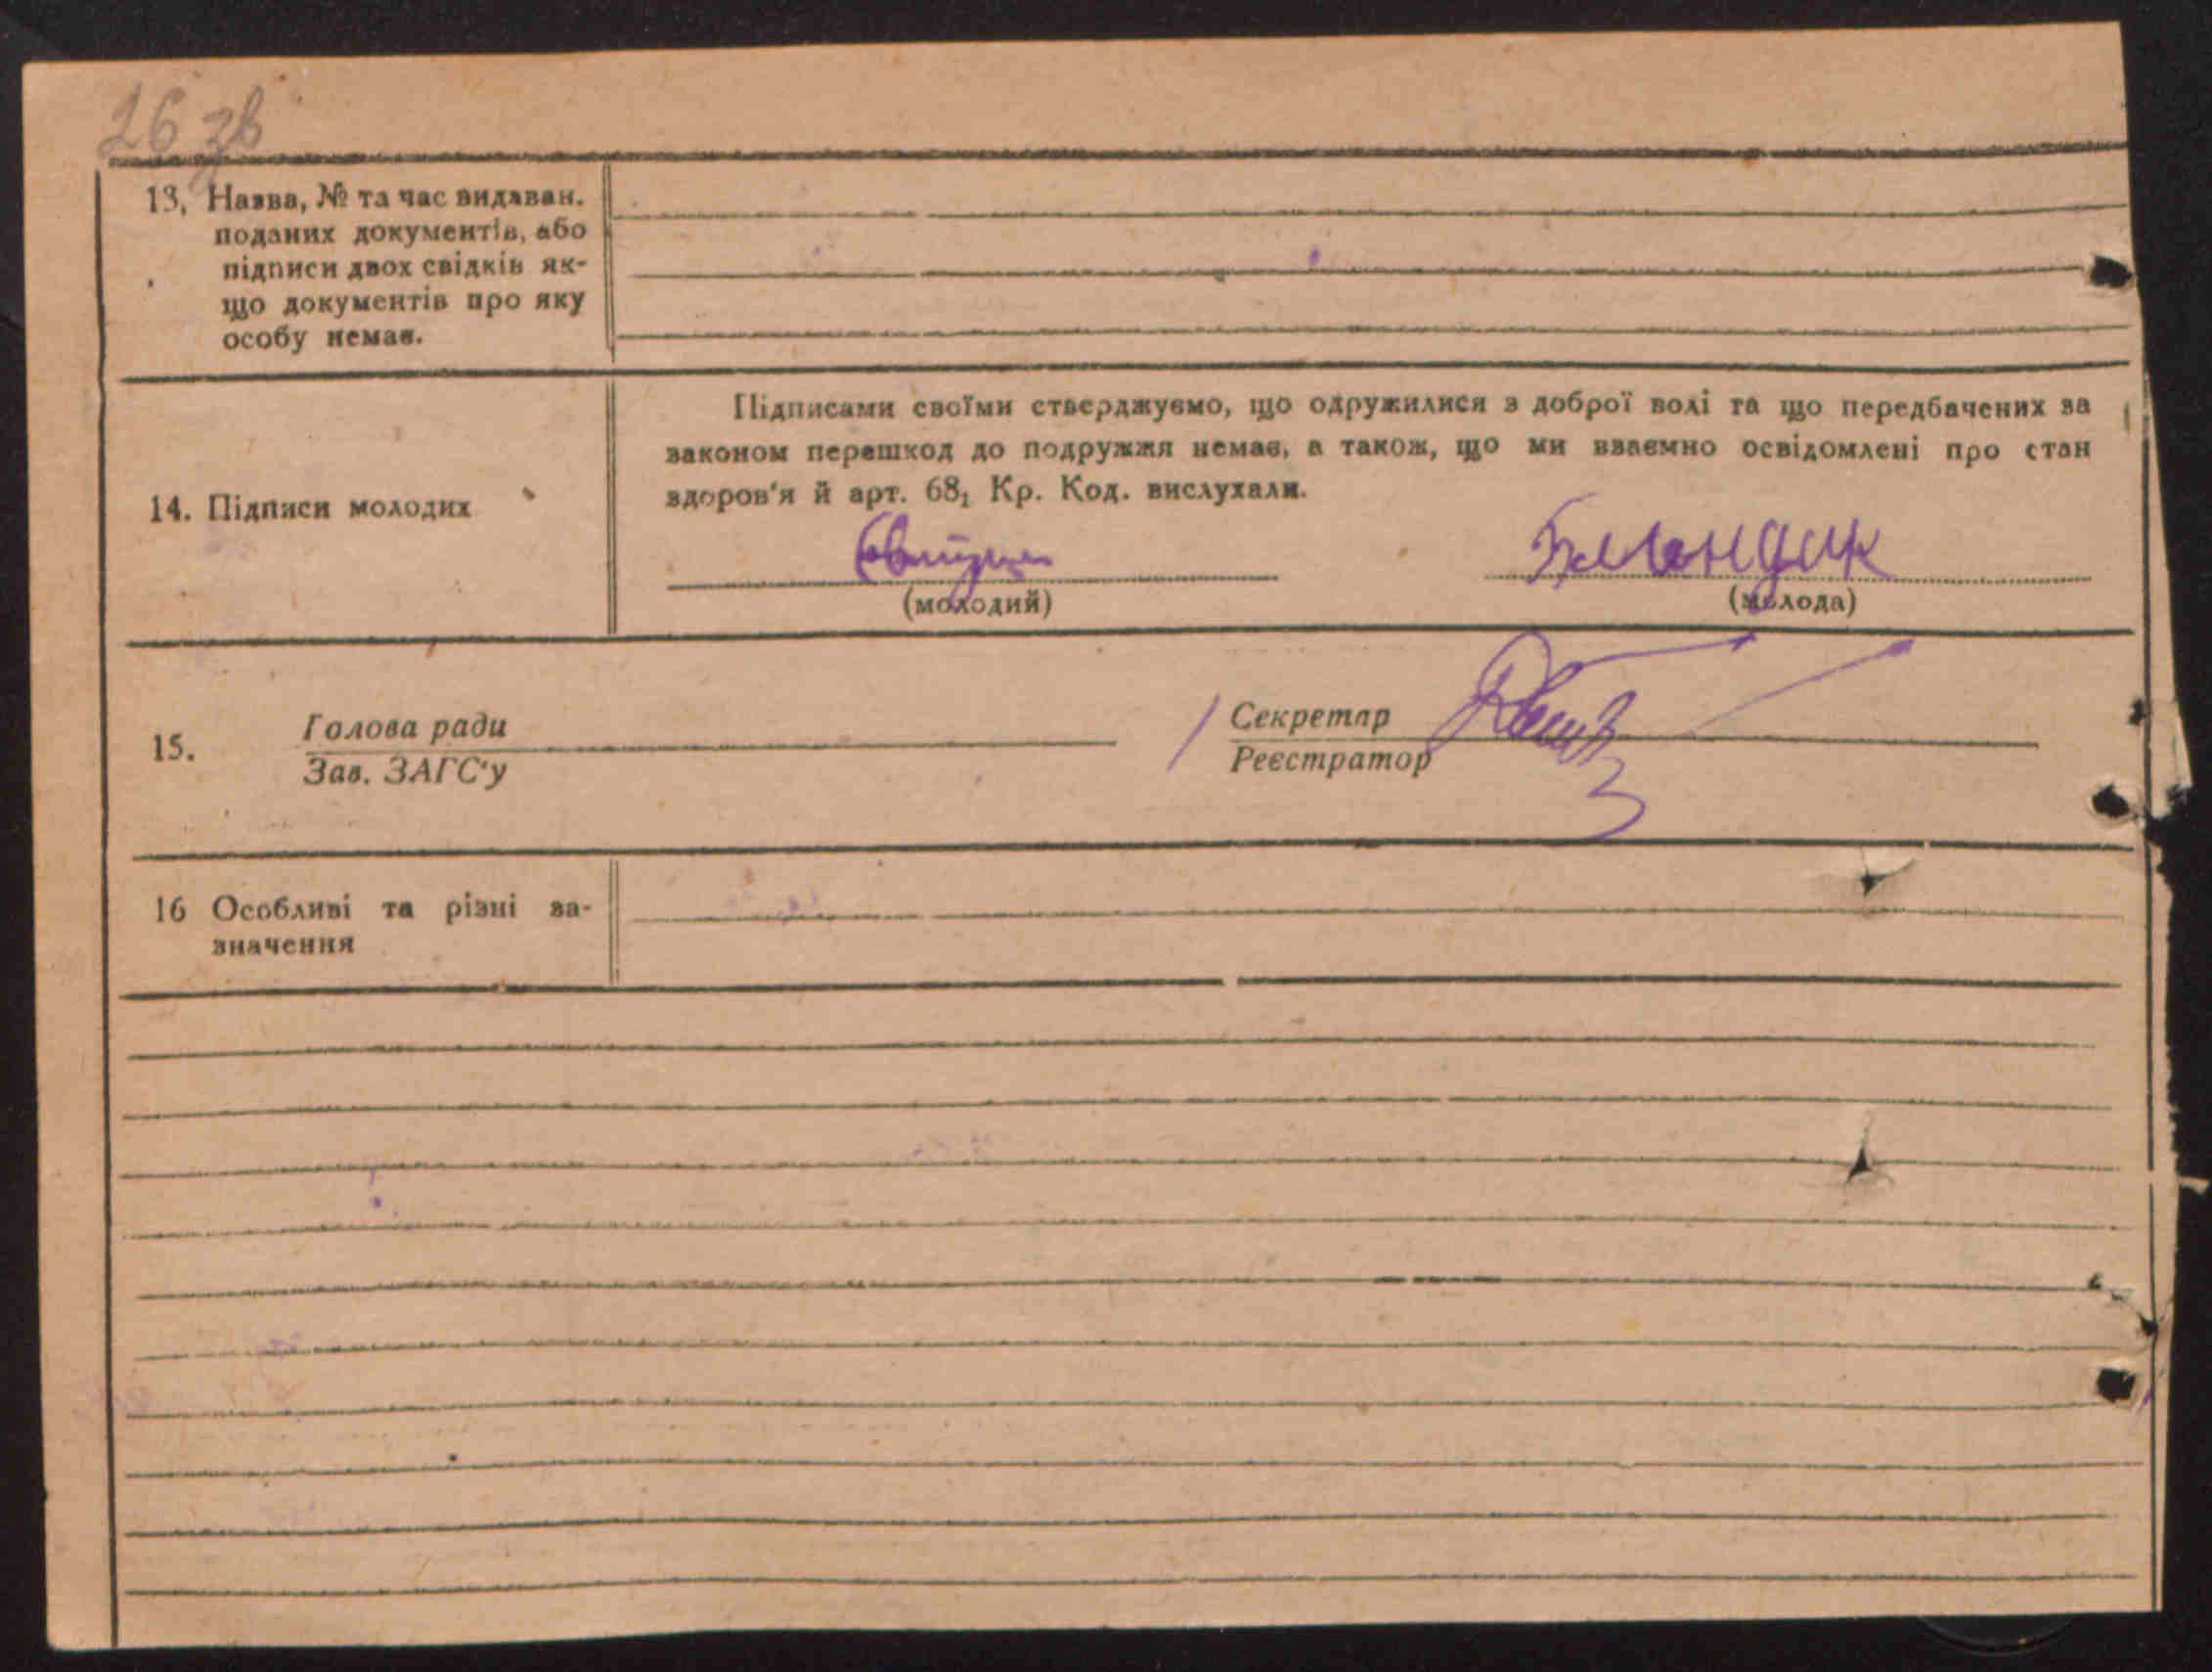 26 зв
13, Назва, № та час видаван.
поданих документів, або
підписи двох свідків як-
що документів про яку
особу немає.
Підписами своїми стверджуємо, що одружилися з доброї волі та що передбачених за
законом перешкод до подружжя немає, а також, що ми взаємно освідомлені про стан
здоров'я й арт. 68₁ Кр. Код. вислухали.
14. Підписи молодих
(молодий) (молода)
15. Голова ради Секретар
Зав. ЗАГС'у Реєстратор
16 Особливі та різні за-
значення